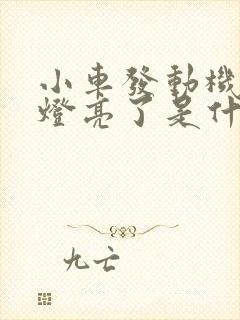 小車發動機
燈亮了是什
九亡